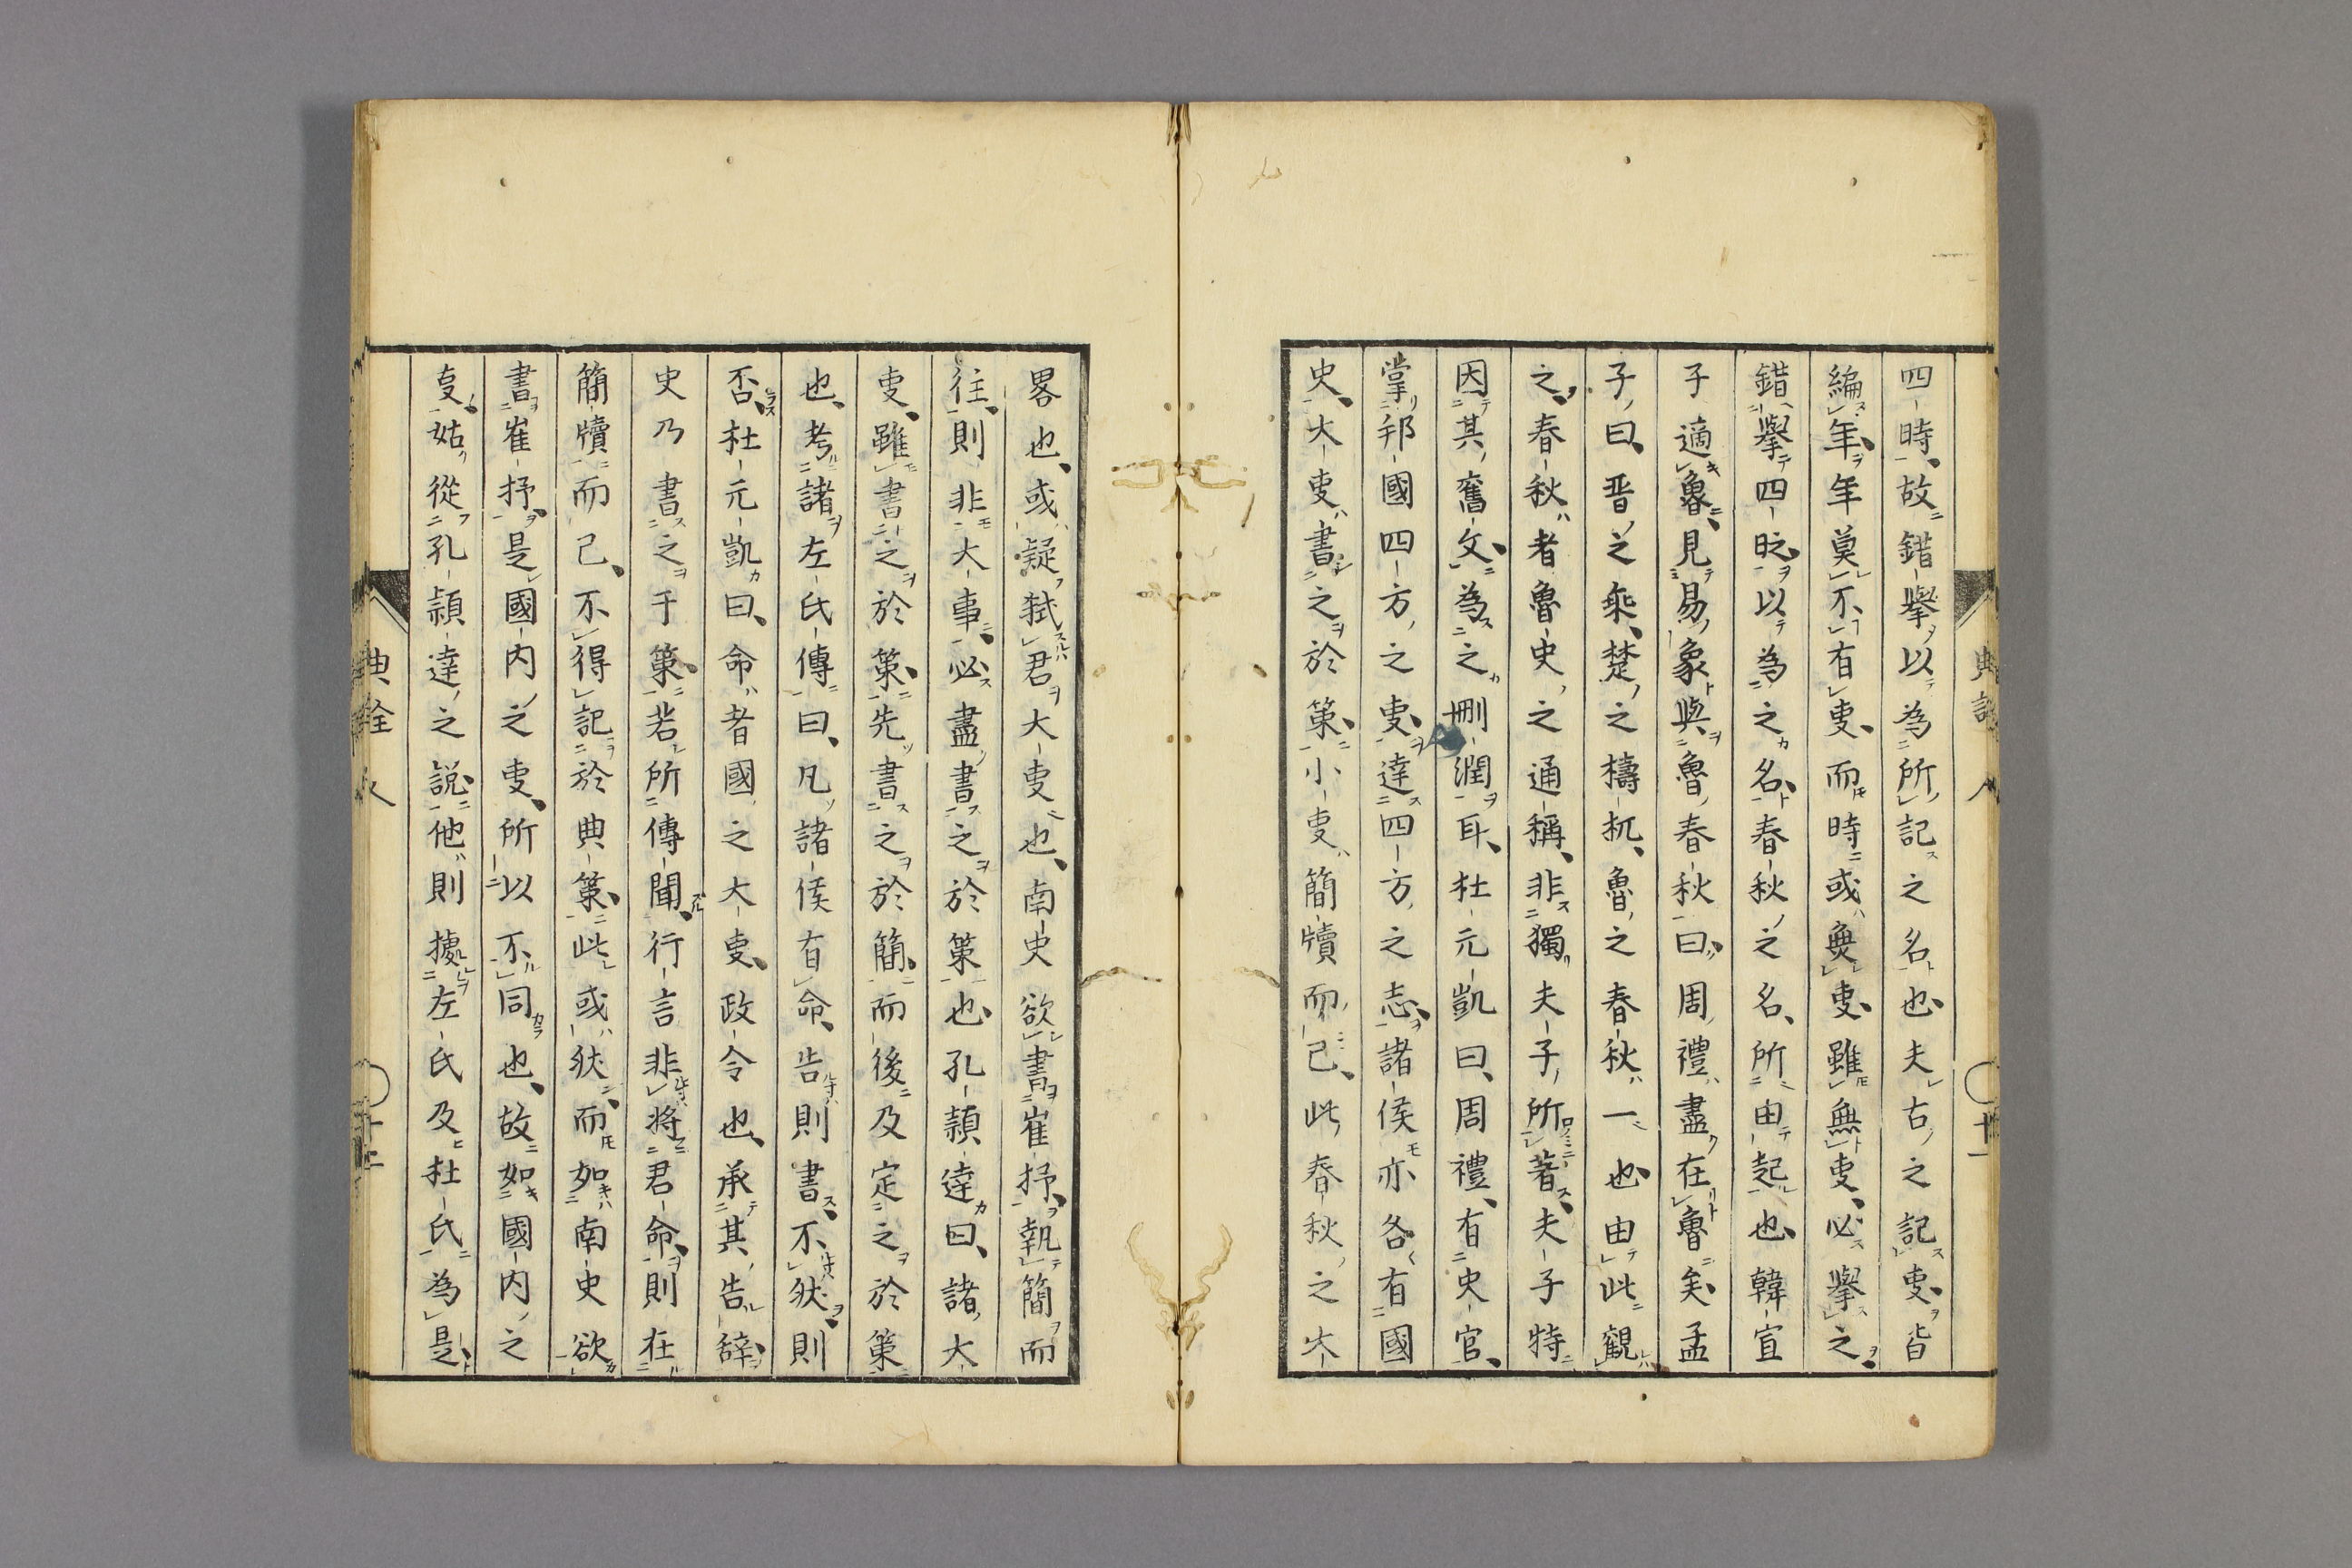 四時故錯擧以為所記之名也夫古之記叓皆
編年年莫不有叓而時或無叓雖無叓必擧之
錯擧四时以為之名春秋之名所由起也韓宣
子適魯見易象與魯春秋曰周禮盡在魯矣孟
子曰晋之乘楚之檮杌魯之春秋一也由此觀
之春秋者魯史之通稱非獨夫子所著夫子特
因其舊文為之刪潤耳杜元凱曰周禮有史官
掌邦國四方之叓達四方之志諸侯亦各有國
史大叓書之於策小叓簡牘而已此春秋之大
畧也或疑弑君大叓也南史欲書崔抒執簡而
往則非大事必盡書之於策也孔頴達曰諸大
叓雖書之於策先書之於簡而後及定之於策
也考諸左氏傳曰凡諸侯有命告則書不然則
否杜元凱曰命者國之大叓政令也承其告辞
史乃書之于策若所傳聞行言非将君命則在
簡牘而已不得記於典策此或然而如南史欲
書崔抒是國内之叓所以不同也故如國内之
叓姑從孔頴達之説他則據左氏及杜氏為是